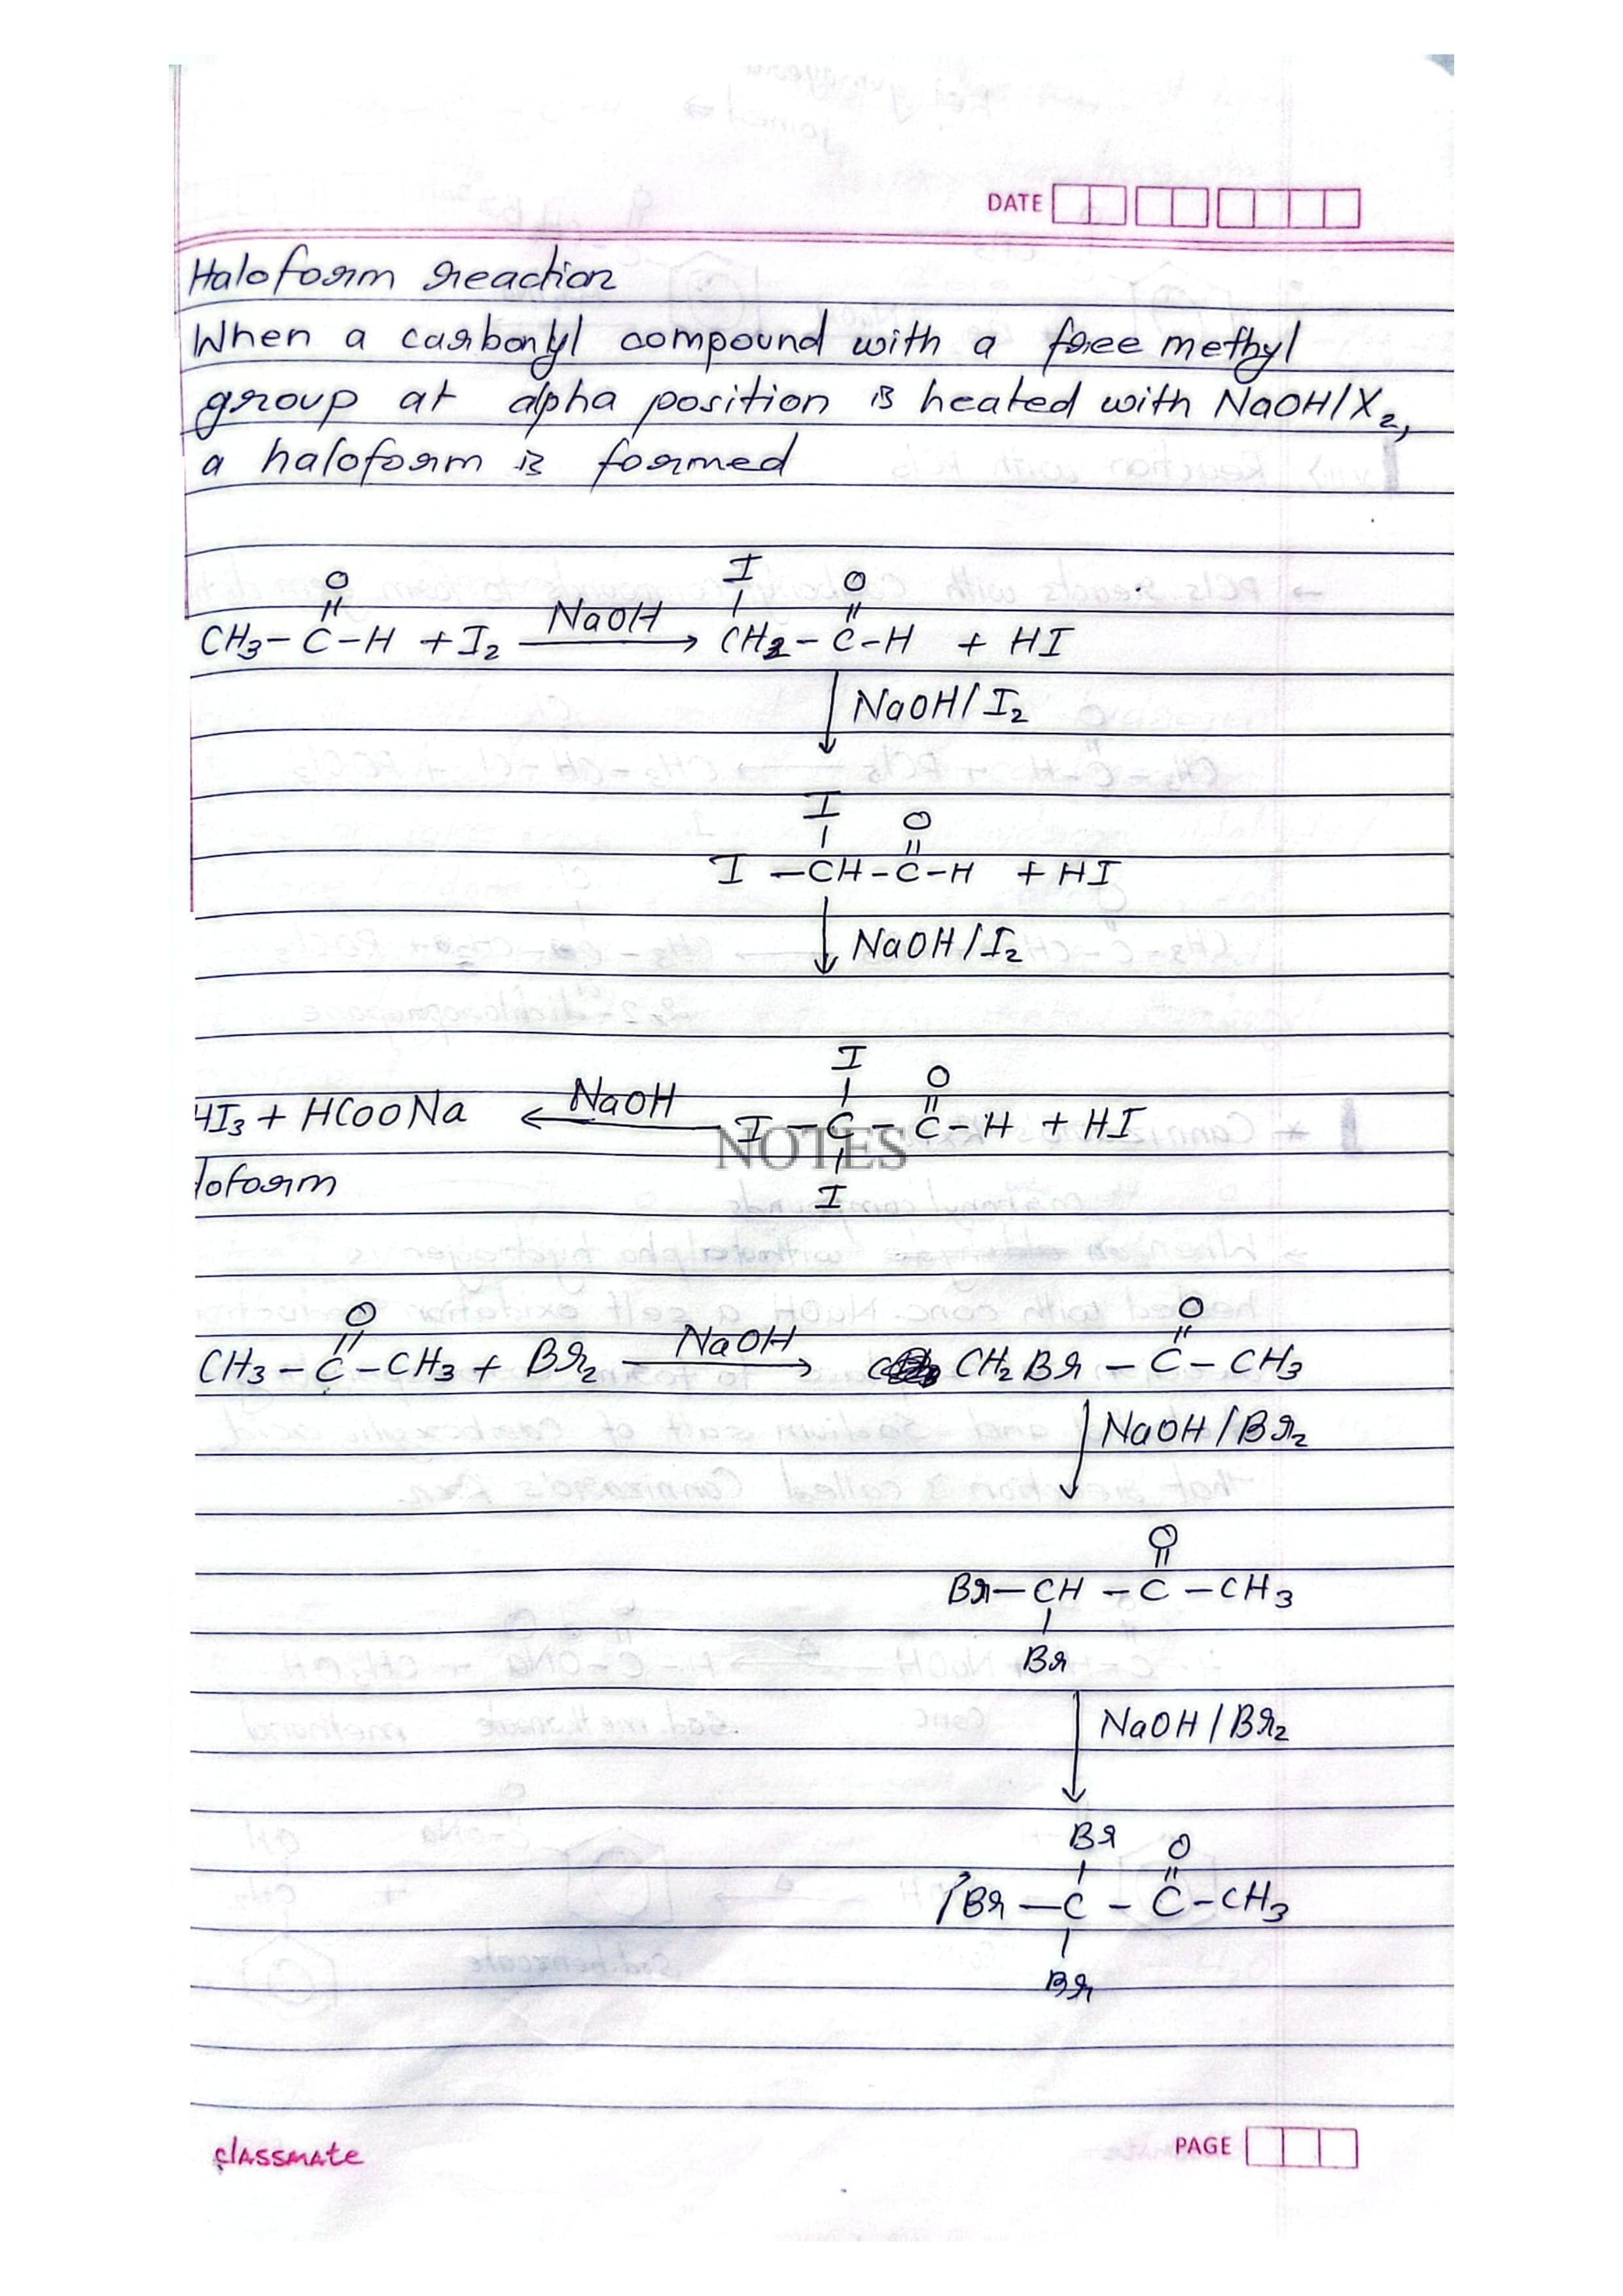 DATE
Haloform reaction
When a carbonyl compound with a free methyl
group at alpha position is heated with NaOH/X₂,
a haloform is formed
I
O O
|| | ||
CH₃-C-H + I₂ NaOH → CH₂-C-H + HI
↓ NaOH/I₂
I
O
| ||
I-CH-C-H + HI
↓ NaOH/I₂
I
O
| ||
HI₃ + HCOONa ← NaOH I-C-C-H + HI
NOTES
|
loform I
O O
|| ||
CH₃-C-CH₃ + Br₂ NaOH → CH₂Br-C-CH₃
↓ NaOH/Br₂
O
||
Br-CH-C-CH₃
|
Br
↓ NaOH/Br₂
Br O
| ||
Br-C-C-CH₃
|
Br
classmate PAGE